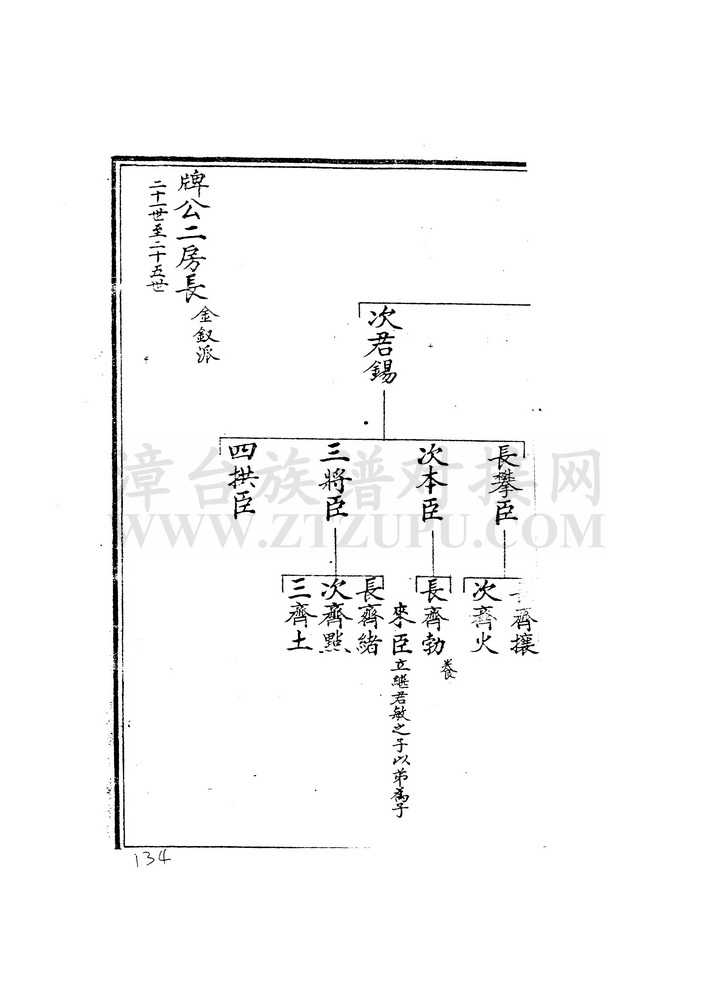 次君錫
長攀臣
次本臣
三將臣
四拱臣
齊攘
次齊火
長齊勃
養
來臣 立繼君敏之子以弟為子
長齊緒
次齊點
三齊土
牌公二房長 金釵派
二十一世至二十五世
134
漳台族谱对接网
WWW.ZTZUPU.COM